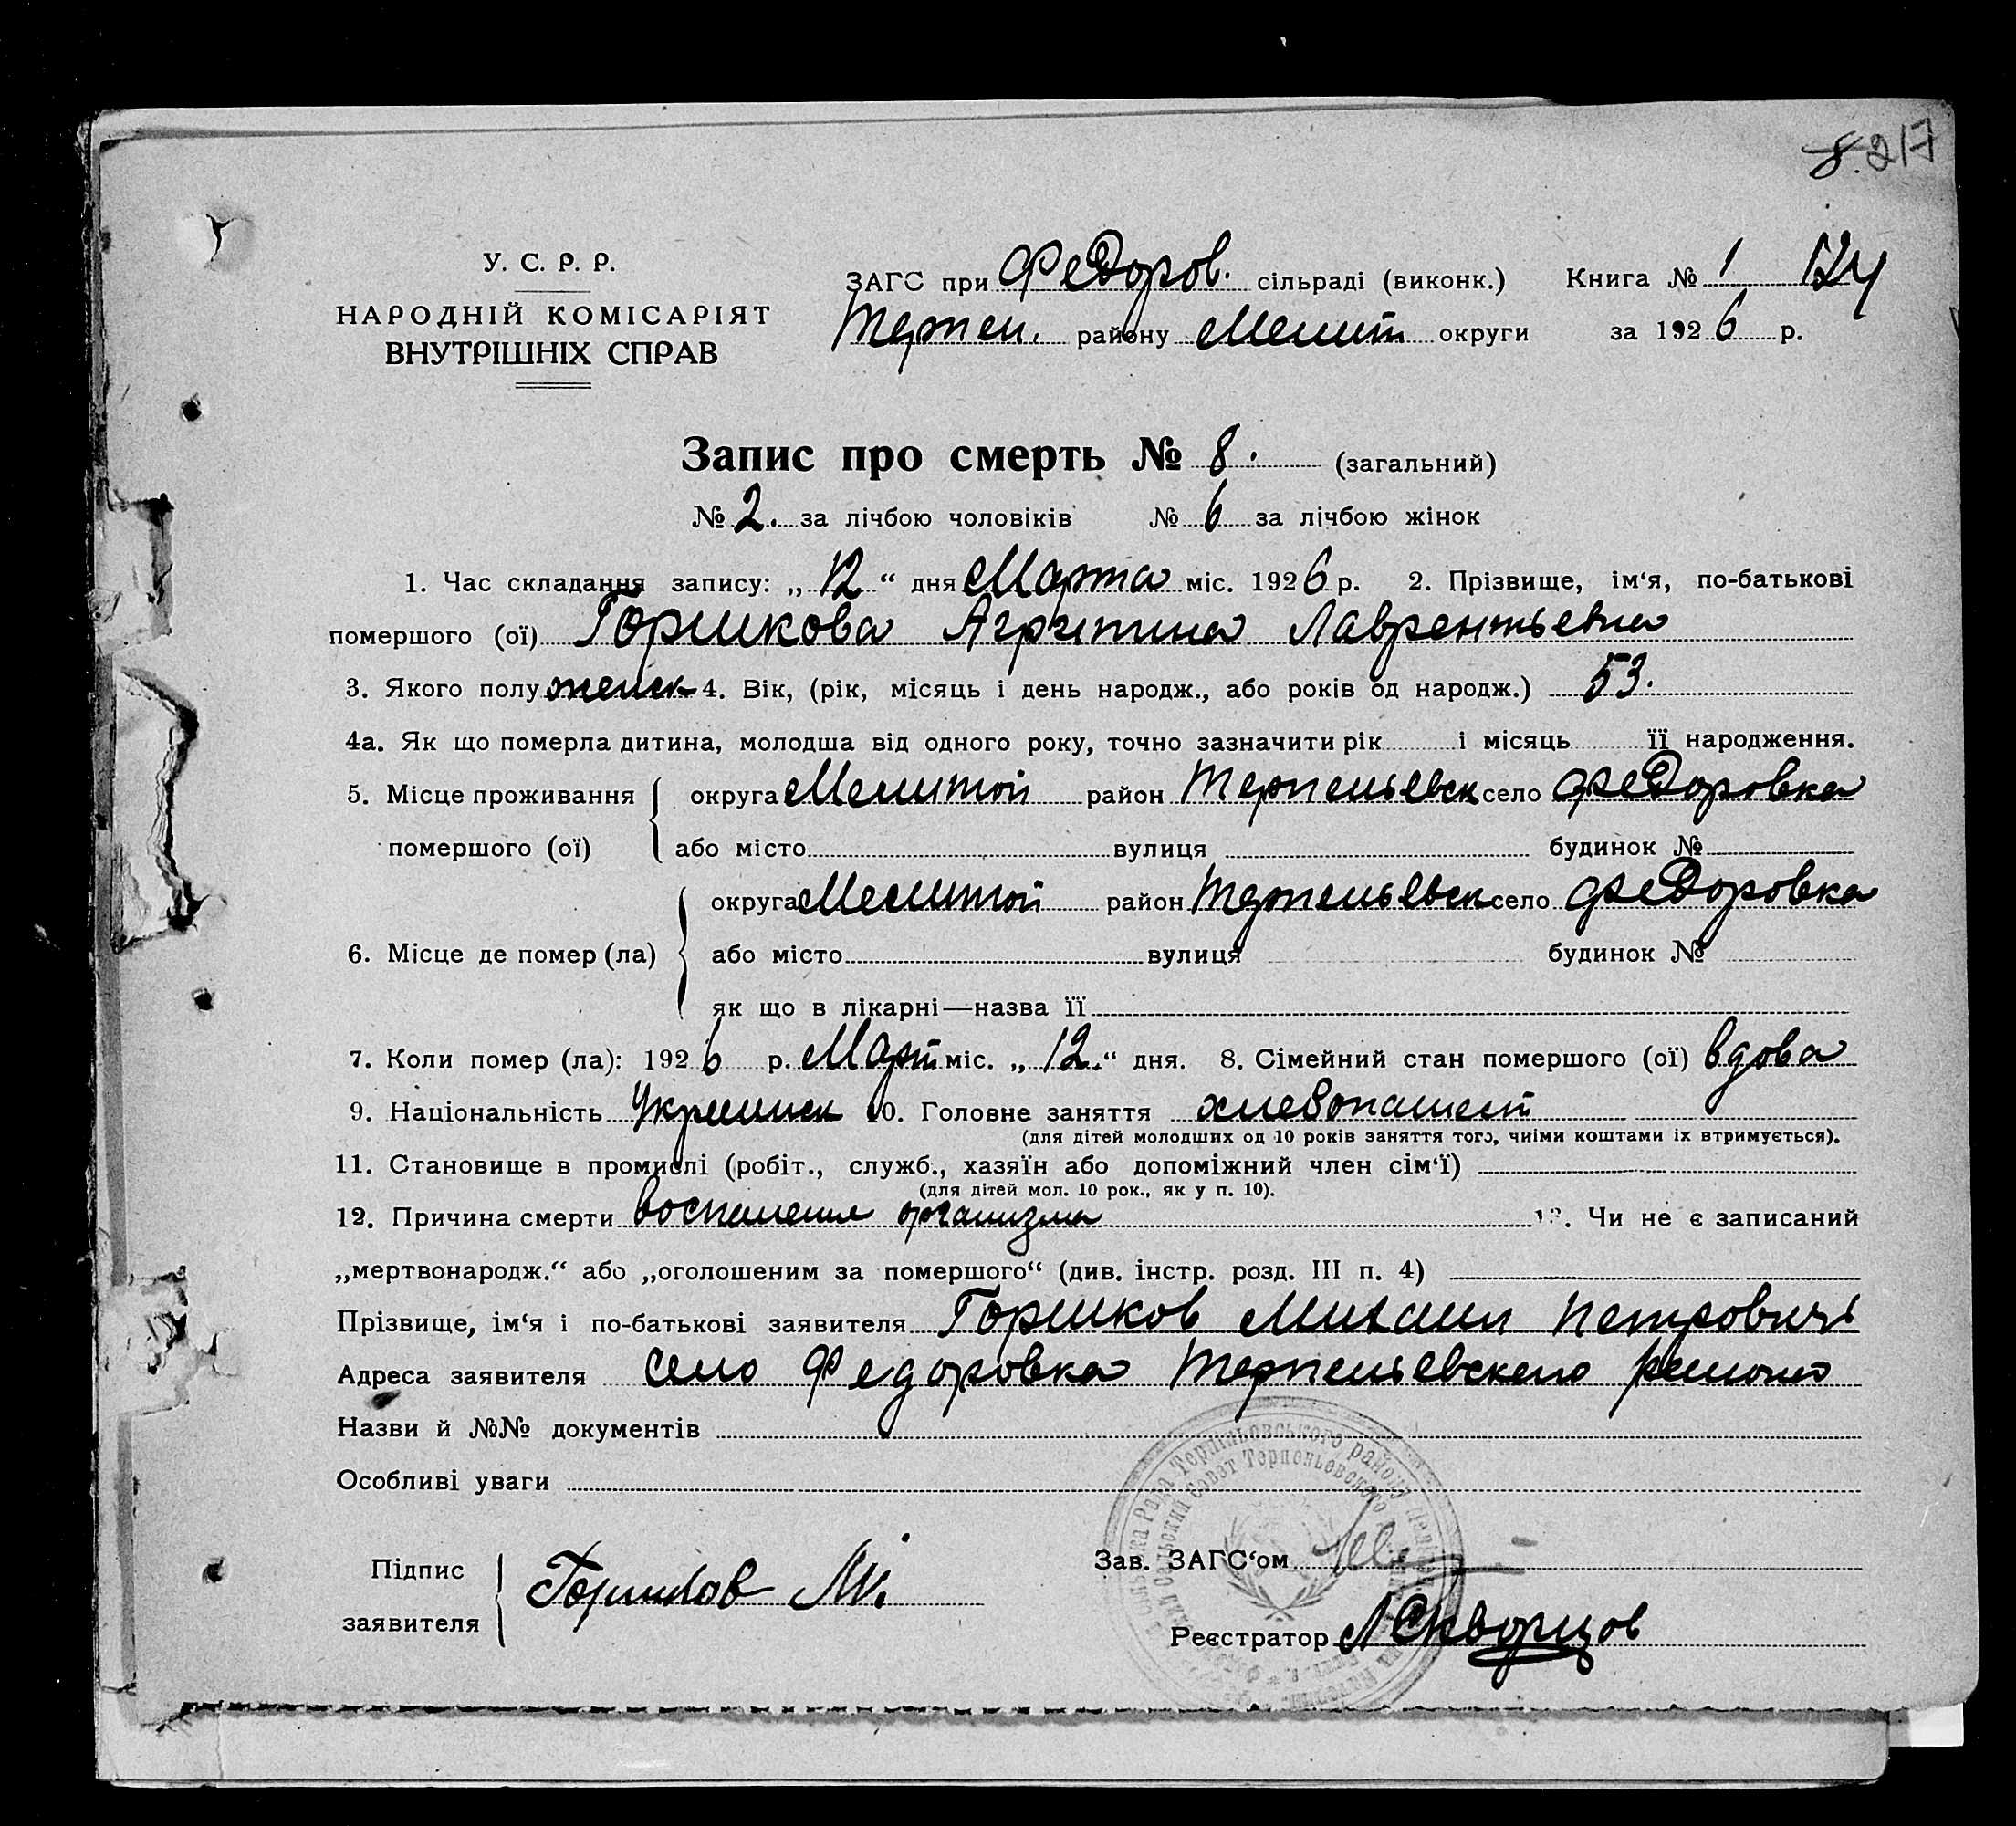 8. 217
У. С. Р. Р.
НАРОДНІЙ КОМІСАРІЯТ
ВНУТРІШНІХ СПРАВ
ЗАГС при Федоров. сільраді (виконк.) Книга № 1
Терпен. району Мелит. округи за 1926 р.
Запис про смерть № 8. (загальний)
№ 2. за лічбою чоловіків № 6 за лічбою жінок
1. Час складання запису: „12“ дня Марта міс. 1926 р. 2. Прізвище, ім‘я, по-батькові
помершого (ої) Горшкова Агрипина Лаврентьевна
3. Якого полу женск 4. Вік, (рік, місяць і день народж., або років од народж.) 53.
4а. Як що померла дитина, молодша від одного року, точно зазначити рік і місяць її народження.
5. Місце проживання округа Мелитой район Терпеньевск село Федоровка
помершого (ої) або місто вулиця будинок №
округа Мелитой район Терпеньевск село Федоровка
6. Місце де помер (ла) або місто вулиця будинок №
як що в лікарні—назва її
7. Коли помер (ла): 1926 р. Март міс. „12.“ дня. 8. Сімейний стан помершого (ої) вдова
9. Національність Украинск 10. Головне заняття хлебопашест
(для дітей молодших од 10 років заняття того, чиіми коштами іх втримується).
11. Становище в промислі (робіт., служб., хазяїн або допоміжний член сім‘ї)
(для дітей мол. 10 рок., як у п. 10).
12. Причина смерти воспаления организма 13. Чи не є записаний
„мертвонародж.“ або „оголошеним за помершого“ (див. інстр. розд. III п. 4)
Прізвище, ім‘я і по-батькові заявителя Горшков Михаил Петрович
Адреса заявителя село Федоровка Терпеньевского района
Назви й №№ документів
Особливі уваги
Підпис
заявителя Горшков М.
Зав. ЗАГС‘ом
Реєстратор Л Скворцов
Рада Терпіньовського району
Сельский Совет Терпеньевского